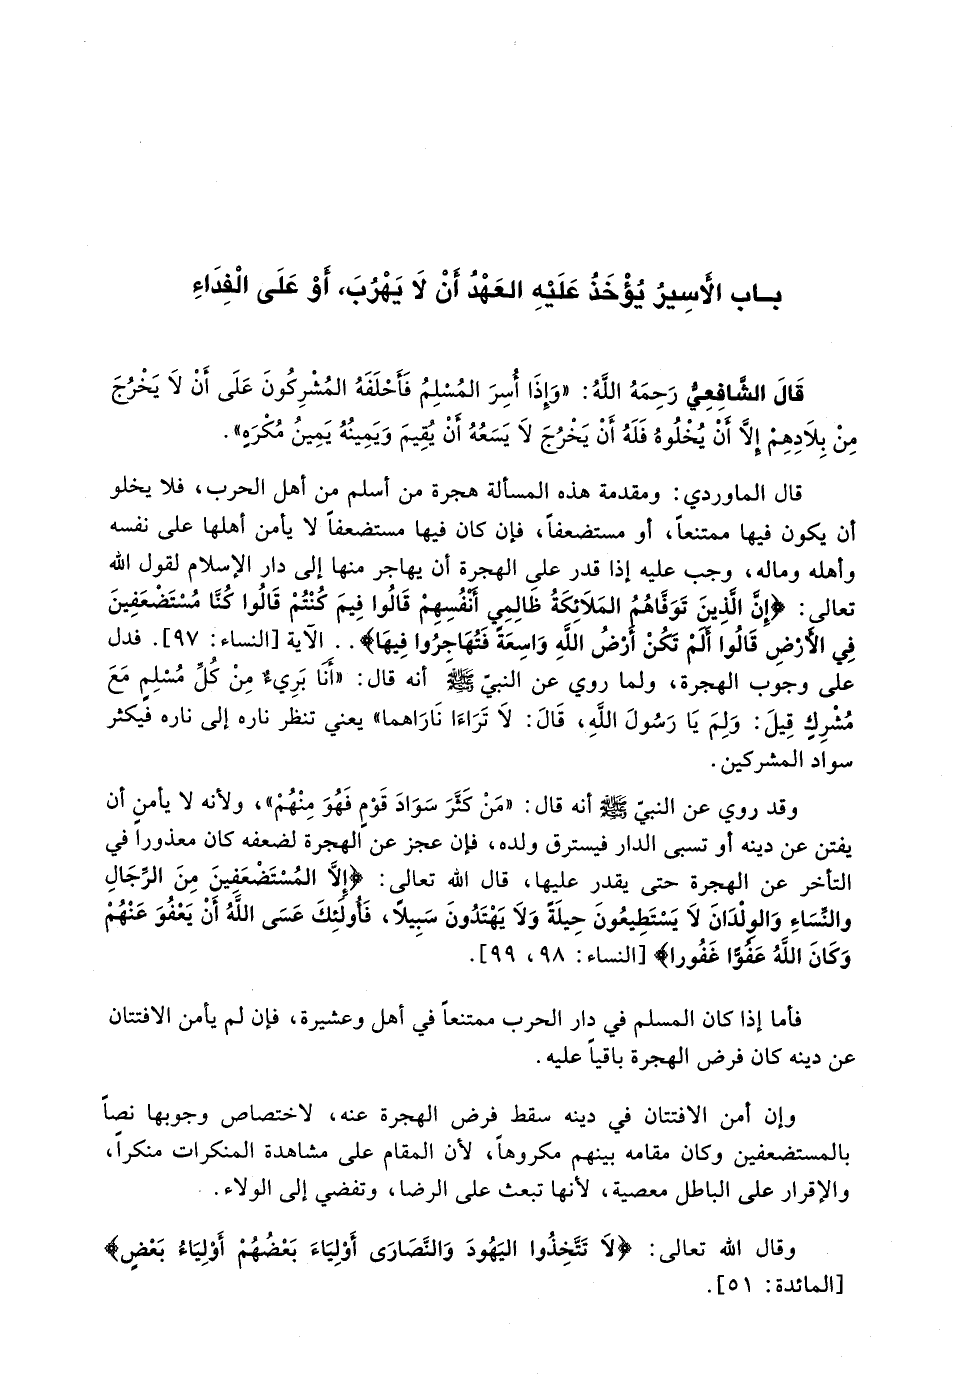 بـاب الأَسِيرُ يُؤْخَذُ عَلَيْهِ العَهْدُ أَنْ لَا يَهْرُبَ، أَوْ عَلَى الْفِدَاءِ
قَالَ الشَّافِعِيُّ رَحِمَهُ اللَّهُ: «وَإِذَا أُسِرَ المُسْلِمُ فَأَحْلَفَهُ المُشْرِكُونَ عَلَى أَنْ لَا يَخْرُجَ
مِنْ بِلَادِهِمْ إِلَّا أَنْ يُخْلُوهُ فَلَهُ أَنْ يَخْرُجَ لَا يَسَعُهُ أَنْ يُقِيمَ وَيَمِينُهُ يَمِينُ مُكْرَهٍ».
قال الماوردي: ومقدمة هذه المسألة هجرة من أسلم من أهل الحرب، فلا يخلو
أن يكون فيها ممتنعاً، أو مستضعفاً، فإن كان فيها مستضعفاً لا يأمن أهلها على نفسه
وأهله وماله، وجب عليه إذا قدر على الهجرة أن يهاجر منها إلى دار الإسلام لقول الله
تعالى: ﴿إِنَّ الَّذِينَ تَوَفَّاهُمُ المَلَائِكَةُ ظَالِمِي أَنْفُسِهِمْ قَالُوا فِيمَ كُنْتُمْ قَالُوا كُنَّا مُسْتَضْعَفِينَ
فِي الأَرْضِ قَالُوا أَلَمْ تَكُنْ أَرْضُ اللَّهِ وَاسِعَةً فَتُهَاجِرُوا فِيهَا﴾.. الآية [النساء: ٩٧]. فدل
على وجوب الهجرة، ولما روي عن النبيّ ﷺ أنه قال: «أَنَا بَرِيءٌ مِنْ كُلِّ مُسْلِمٍ مَعَ
مُشْرِكٍ قِيلَ: وَلِمَ يَا رَسُولَ اللَّهِ، قَالَ: لَا تَرَاءَا نَارَاهما» يعني تنظر ناره إلى ناره فيكثر
سواد المشركين.
وقد روي عن النبيّ ﷺ أنه قال: «مَنْ كَثَّرَ سَوَادَ قَوْمٍ فَهُوَ مِنْهُمْ»، ولأنه لا يأمن أن
يفتن عن دينه أو تسبى الدار فيسترق ولده، فإن عجز عن الهجرة لضعفه كان معذوراً في
التأخر عن الهجرة حتى يقدر عليها، قال الله تعالى: ﴿إِلَّا المُسْتَضْعَفِينَ مِنَ الرِّجَالِ
والنِّسَاءِ وَالوِلْدَانَ لَا يَسْتَطِيعُونَ حِيلَةً وَلَا يَهْتَدُونَ سَبِيلًا، فَأُولَئِكَ عَسَى اللَّهُ أَنْ يَعْفُوَ عَنْهُمْ
وَكَانَ اللَّهُ عَفُوًّا غَفُورا﴾ [النساء: ٩٨، ٩٩].
فأما إذا كان المسلم في دار الحرب ممتنعاً في أهل وعشيرة، فإن لم يأمن الافتتان
عن دينه كان فرض الهجرة باقياً عليه.
وإن أمن الافتتان في دينه سقط فرض الهجرة عنه، لاختصاص وجوبها نصاً
بالمستضعفين وكان مقامه بينهم مكروهاً، لأن المقام على مشاهدة المنكرات منكراً،
والإقرار على الباطل معصية، لأنها تبعث على الرضا، وتفضي إلى الولاء.
وقال الله تعالى: ﴿لَا تَتَّخِذُوا اليَهُودَ وَالنَّصَارَى أَوْلِيَاءَ بَعْضُهُمْ أَوْلِيَاءُ بَعْضٍ﴾
[المائدة: ٥١].